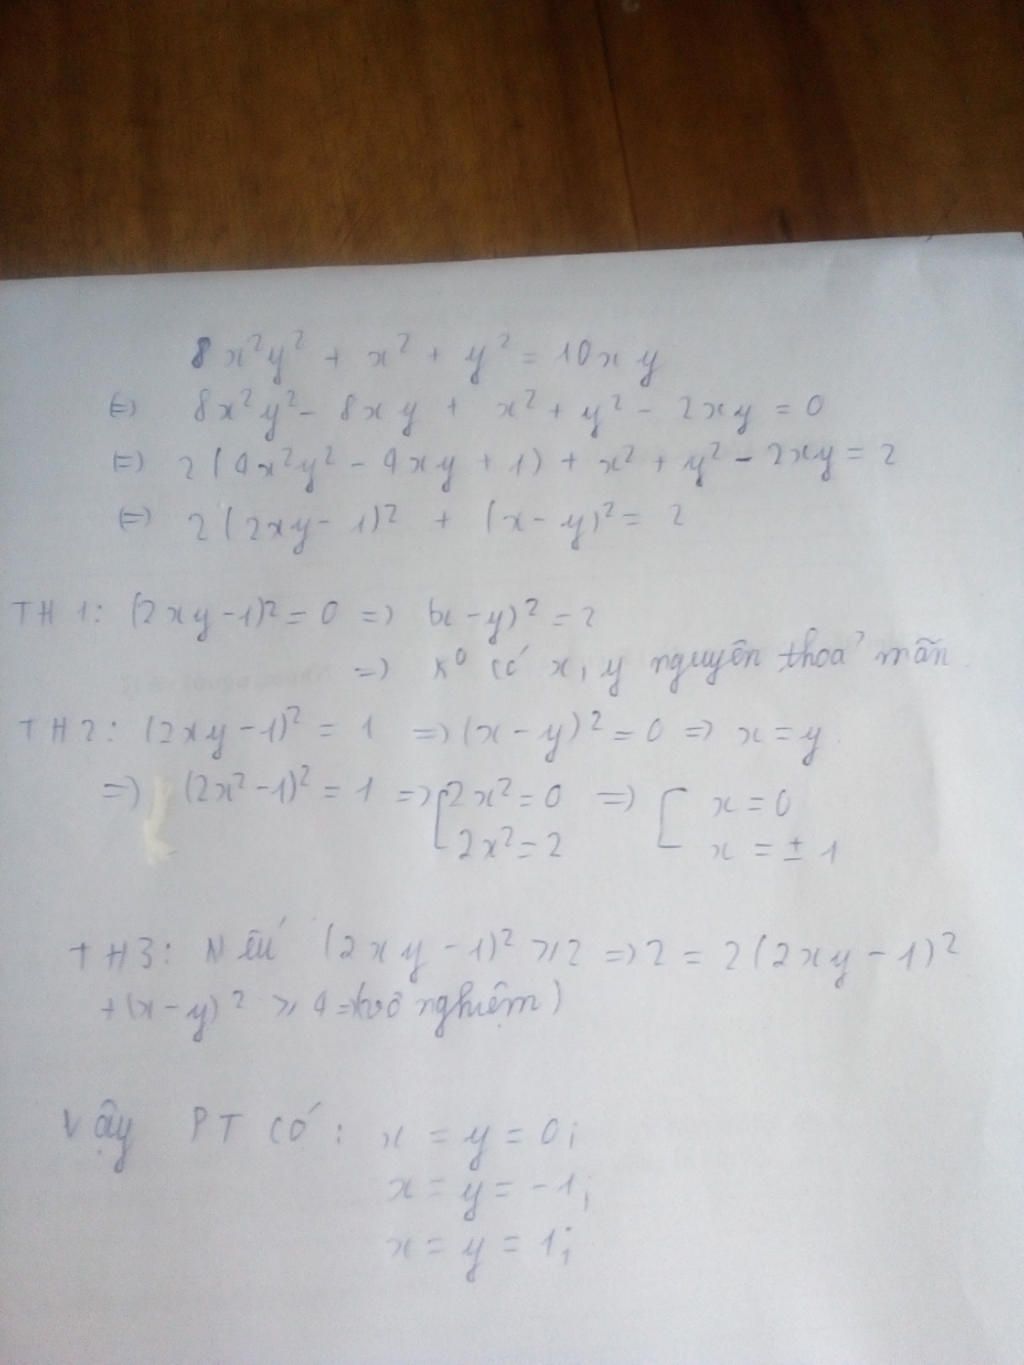 8x²y² + x² + y² = 10xy
⇔ 8x²y² - 8xy + x² + y² - 2xy = 0
⇔ 2(4x²y² - 4xy + 1) + x² + y² - 2xy = 2
⇔ 2(2xy - 1)² + (x - y)² = 2
TH1: (2xy - 1)² = 0 => (x - y)² = 2
=> k⁰ có x, y nguyên thoả mãn.
TH2: (2xy - 1)² = 1 => (x - y)² = 0 => x = y.
=> (2x² - 1)² = 1 => [ 2x² = 0 => [ x = 0
2x² = 2 x = ± 1
TH3: Nếu (2xy - 1)² ⩾ 2 => 2 = 2(2xy - 1)²
+ (x - y)² ⩾ 4 = nghiệm)
Vậy PT có: x = y = 0;
x = y = -1;
x = y = 1;